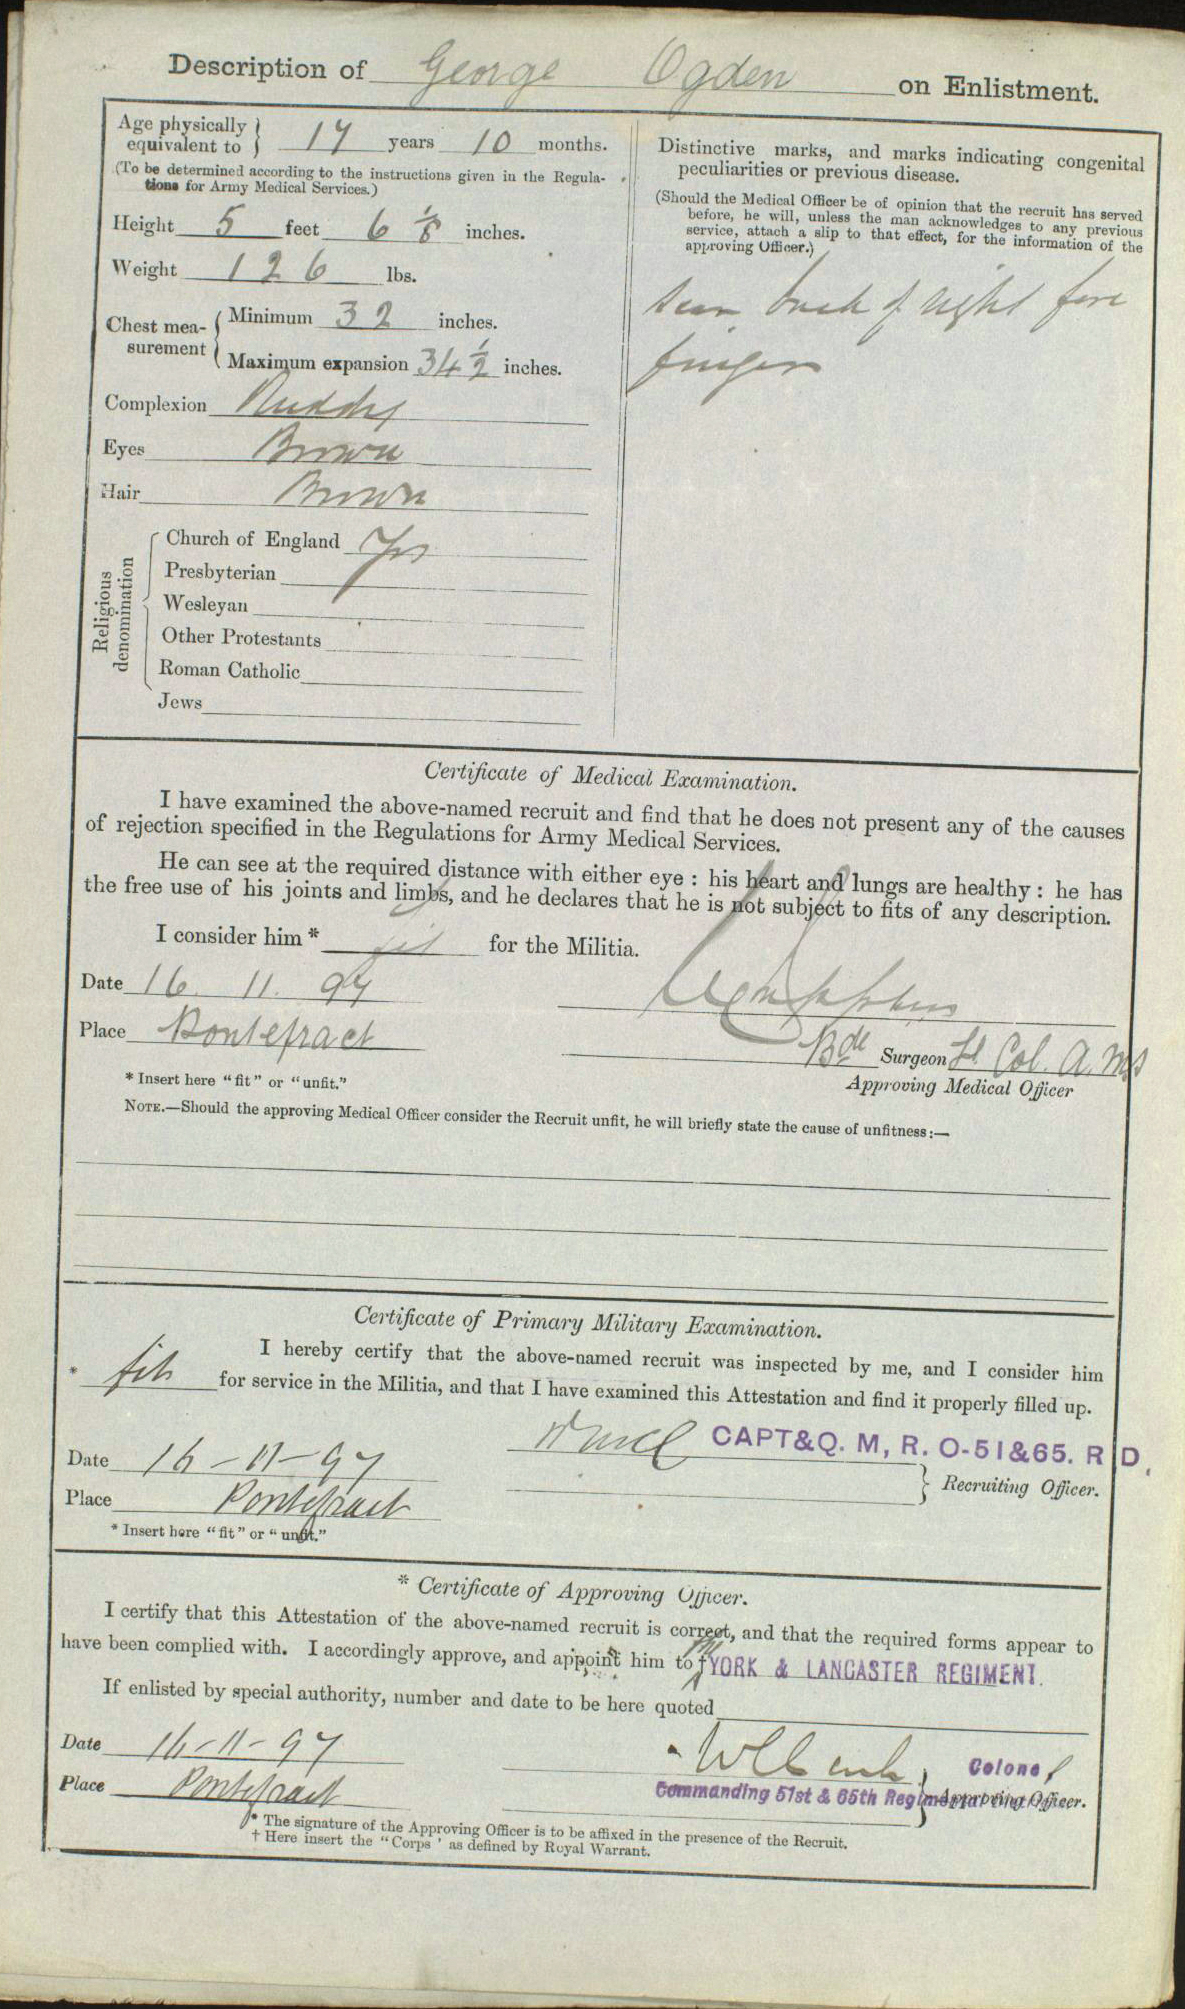 Description of George Ogden on Enlistment.
Age physically equivalent to } 17 years 10 months.
(To be determined according to the instructions given in the Regula-
tions for Army Medical Services.)
Height 5 feet 6 1/8 inches.
Weight 126 lbs.
Chest mea-
surement { Minimum 32 inches.
Maximum expansion 34 1/2 inches.
Complexion Ruddy
Eyes Brown
Hair Brown
Religious denomination
Church of England Yes
Presbyterian
Wesleyan
Other Protestants
Roman Catholic
Jews
Distinctive marks, and marks indicating congenital
peculiarities or previous disease.
(Should the Medical Officer be of opinion that the recruit has served
before, he will, unless the man acknowledges to any previous
service, attach a slip to that effect, for the information of the
approving Officer.)
Scar back of right fore
finger
Certificate of Medical Examination.
I have examined the above-named recruit and find that he does not present any of the causes
of rejection specified in the Regulations for Army Medical Services.
He can see at the required distance with either eye : his heart and lungs are healthy : he has
the free use of his joints and limbs, and he declares that he is not subject to fits of any description.
I consider him * fit for the Militia.
Date 16. 11. 97
Place Pontefract
Bde Surgeon Lt Col. A.M.S
Approving Medical Officer
* Insert here "fit" or "unfit."
NOTE.—Should the approving Medical Officer consider the Recruit unfit, he will briefly state the cause of unfitness:—
Certificate of Primary Military Examination.
I hereby certify that the above-named recruit was inspected by me, and I consider him
* fit for service in the Militia, and that I have examined this Attestation and find it properly filled up.
CAPT&Q. M, R. O-51&65. R D.
Date 16-11-97
} Recruiting Officer.
Place Pontefract
* Insert here "fit" or "unfit."
* Certificate of Approving Officer.
I certify that this Attestation of the above-named recruit is correct, and that the required forms appear to
have been complied with. I accordingly approve, and appoint him to † the YORK & LANCASTER REGIMENT.
If enlisted by special authority, number and date to be here quoted
Date 16-11-97
Colonel
Place Pontefract
Commanding 51st & 65th Regimental District
} Approving Officer.
* The signature of the Approving Officer is to be affixed in the presence of the Recruit.
† Here insert the "Corps' as defined by Royal Warrant.